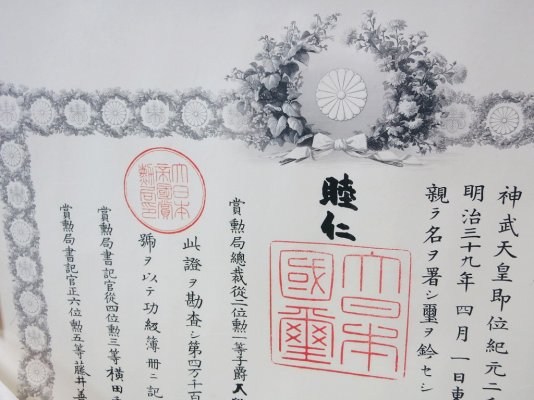 神武天皇即位紀元二千
明治三十九年四月一日東
親ラ名ヲ署シ璽ヲ鈐セシ
睦仁
大日本
國璽
賞勲局總裁從二位勲一等子爵大
此證ヲ勘査シ第四万千百
號ヲ以テ功級簿册ニ記
賞勲局書記官從四位勲三等横田
賞勲局書記官正六位勲五等藤井善
大日本
帝國賞
勲局印